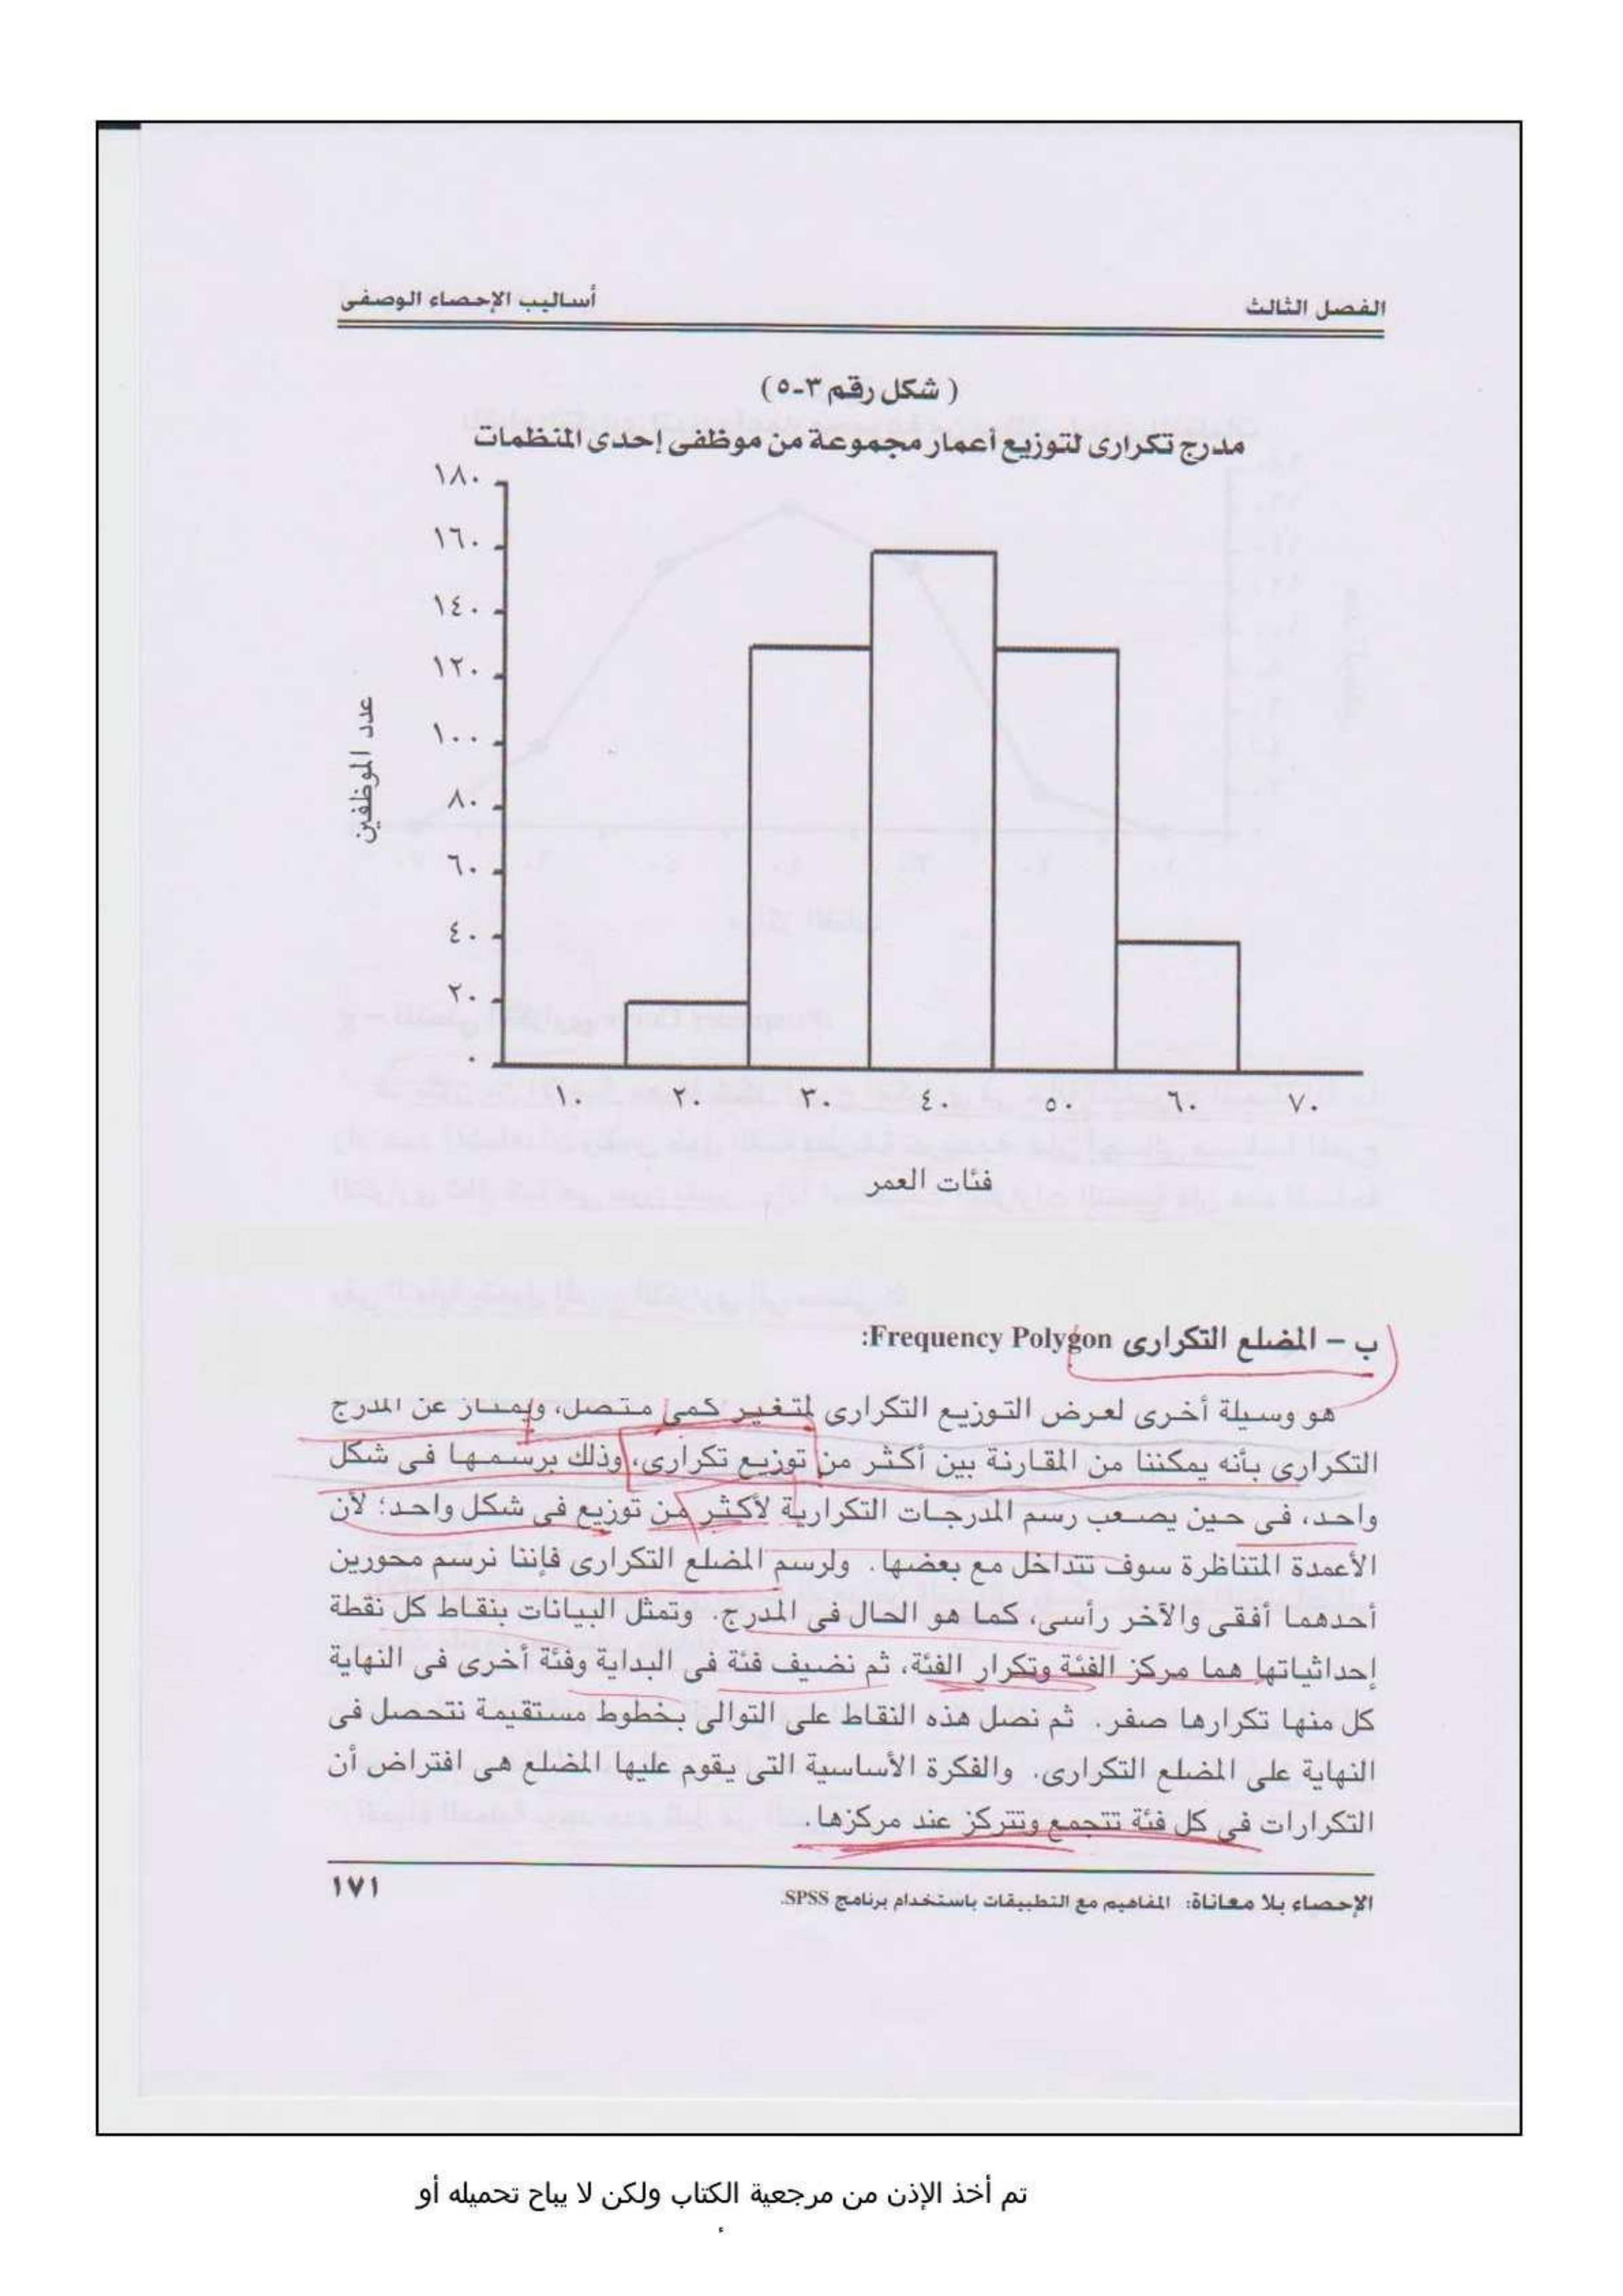 الفصل الثالث
أساليب الإحصاء الوصفى
( شكل رقم ٣-٥ )
مدرج تكرارى لتوزيع أعمار مجموعة من موظفى إحدى المنظمات
١٨٠
١٦٠
١٤٠
١٢٠
١٠٠
٨٠
٦٠
٤٠
٢٠
٠
عدد الموظفين
١٠ ٢٠ ٣٠ ٤٠ ٥٠ ٦٠ ٧٠
فئات العمر
ب – المضلع التكرارى Frequency Polygon:
هو وسيلة أخرى لعرض التوزيع التكرارى لمتغير كمى متصل، ويمتاز عن المدرج
التكرارى بأنه يمكننا من المقارنة بين أكثر من توزيع تكرارى، وذلك برسمها فى شكل
واحد، فى حين يصعب رسم المدرجات التكرارية لأكثر من توزيع فى شكل واحد؛ لأن
الأعمدة المتناظرة سوف تتداخل مع بعضها. ولرسم المضلع التكرارى فإننا نرسم محورين
أحدهما أفقى والآخر رأسى، كما هو الحال فى المدرج. وتمثل البيانات بنقاط كل نقطة
إحداثياتها هما مركز الفئة وتكرار الفئة، ثم نضيف فئة فى البداية وفئة أخرى فى النهاية
كل منها تكرارها صفر. ثم نصل هذه النقاط على التوالى بخطوط مستقيمة نتحصل فى
النهاية على المضلع التكرارى. والفكرة الأساسية التى يقوم عليها المضلع هى افتراض أن
التكرارات فى كل فئة تتجمع وتتركز عند مركزها.
الإحصاء بلا معاناة: المفاهيم مع التطبيقات باستخدام برنامج SPSS.
١٧١
تم أخذ الإذن من مرجعية الكتاب ولكن لا يباح تحميله أو